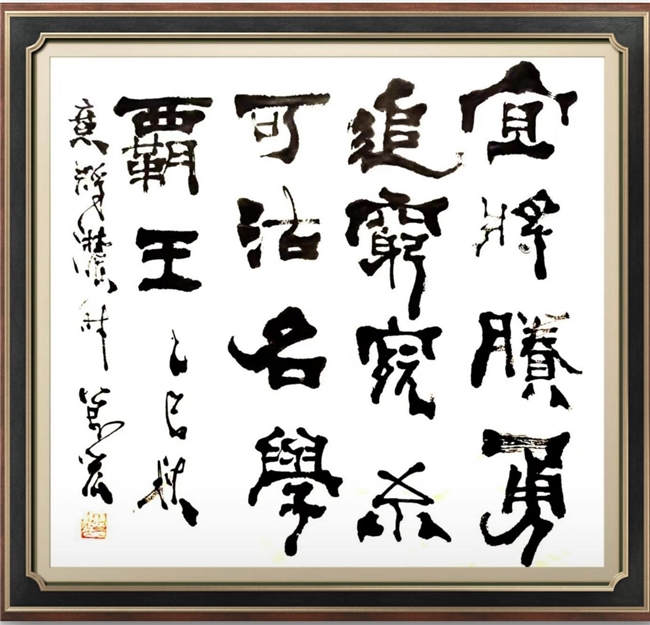 宜將賸勇
追窮寇不
可沽名學
覇王 乙巳秋